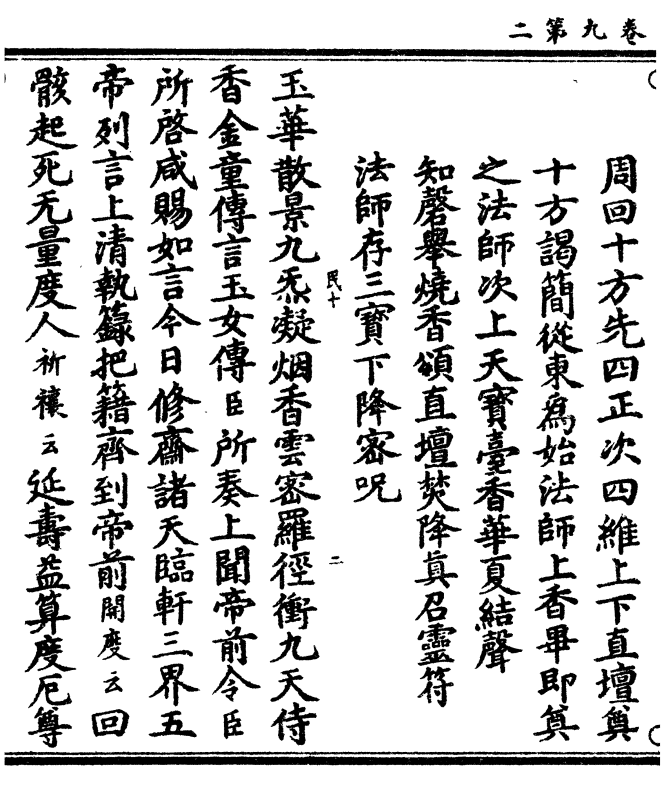 卷九第二
周回十方先四正次四維上下直壇奠
十方謁簡從東爲始法師上香畢即奠
之法師次上天寶臺香華夏結聲
知磬舉燒香頌直壇焚降真召靈符
法師存三寶下降密呪
民十
二
玉華散景九炁凝烟香雲密羅徑衝九天侍
香金童傳言玉女傳臣所奏上聞帝前令臣
所啓咸賜如言今日修齋諸天臨軒三界五
帝列言上清執籙把籍齊到帝前開度云回
骸起死无量度人祈禳云延壽益算度厄尊